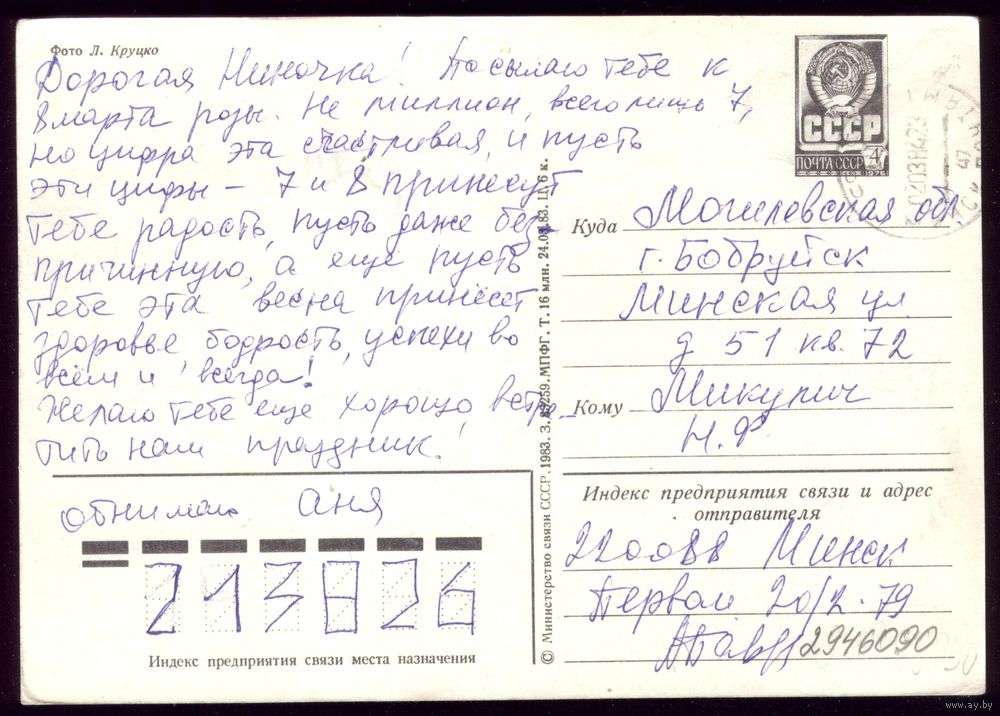 Фото Л. Круцко
Дорогая Ниночка! Посылаю тебе к
8 марта розы. Не миллион, всего лишь 7,
но цифра эта счастливая, и пусть
эти цифры – 7 и 8 принесут
тебе радость, пусть даже без-
причинную, а еще пусть
тебе эта весна принесёт
здоровье, бодрость, успехи во
всём и всегда!
Желаю тебе еще хорошо встре-
тить наш праздник!
обнимаю Аня
213826
Индекс предприятия связи места назначения
© Министерство связи СССР, 1983. З. 83259. МПФГ. Т. 16 млн. 24.08.83. Ц. 6 к.
СССР
ПОЧТА СССР 4
1976
Куда Могилевская обл.
г. Бобруйск
Минская ул
д 51 кв. 72
Кому Микулич
Н. Ф.
Индекс предприятия связи и адрес
отправителя
220088 Минск
Первом 20/2-79
2946090
www.ay.by